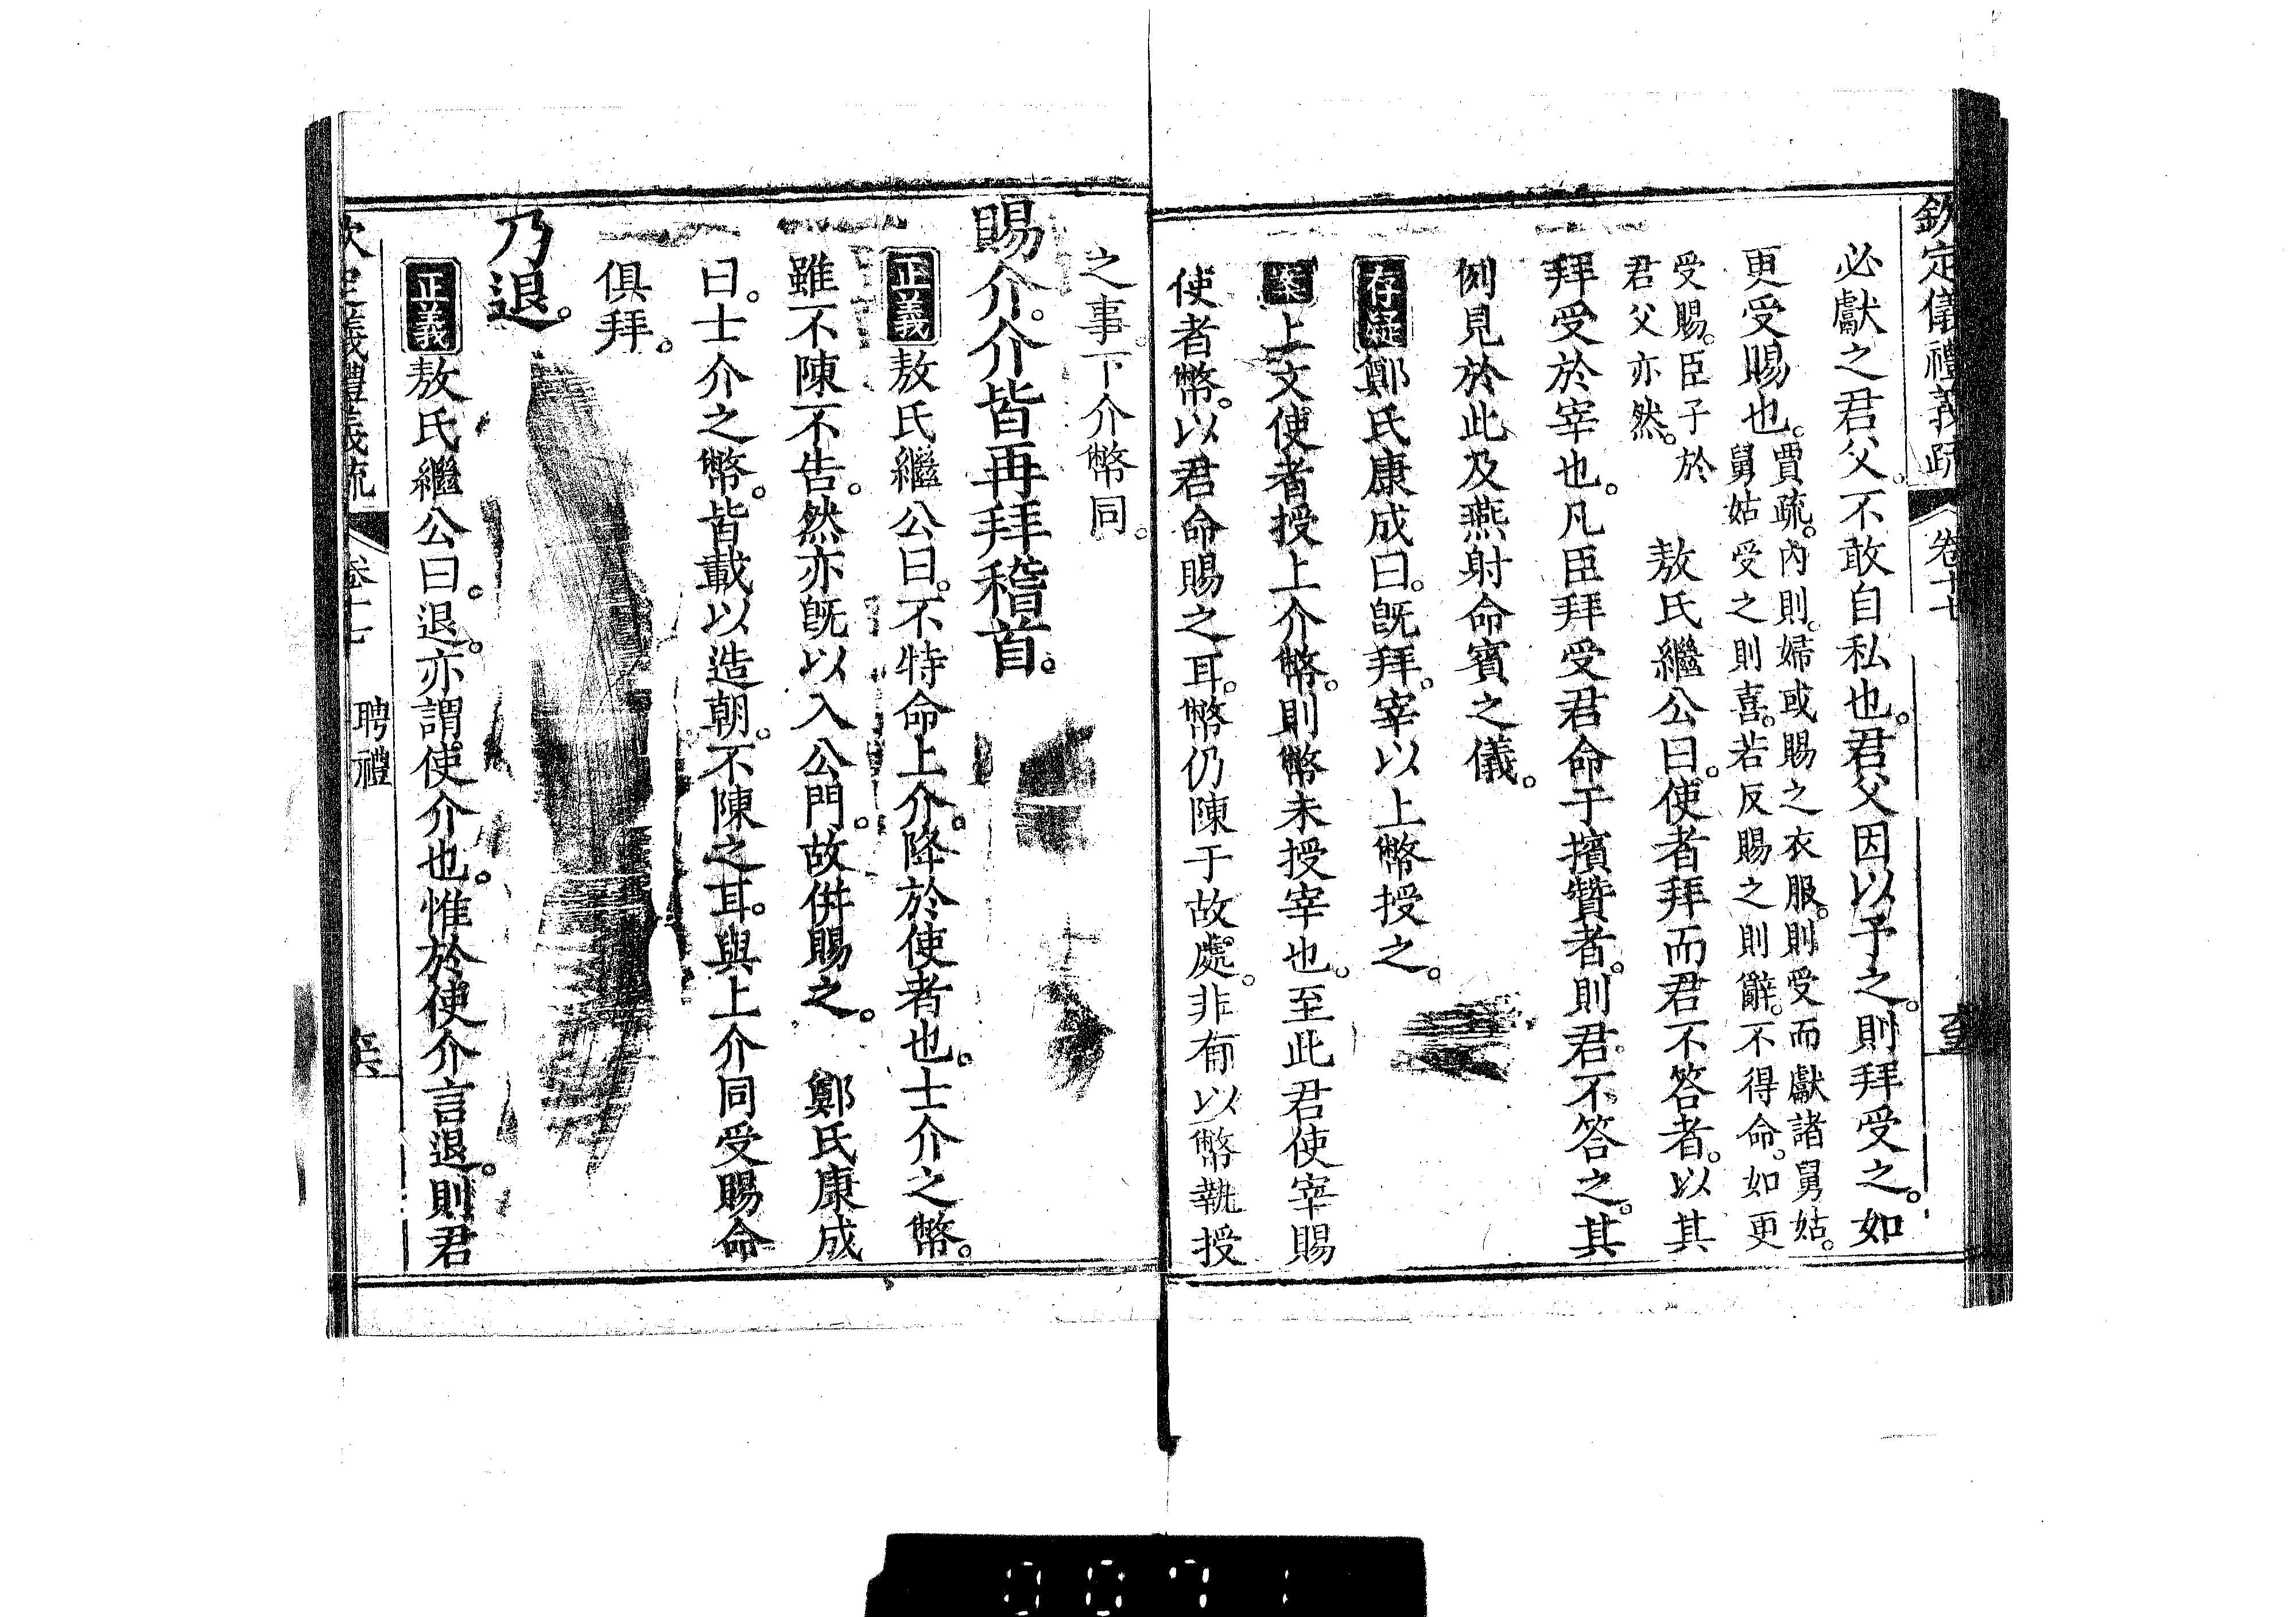 欽定儀禮義疏 卷十七
必獻之君父。不敢自私也。君父因以予之。則拜受之。如
更受賜也。賈疏。內則。婦或賜之衣服。則受而獻諸舅姑。
舅姑受之則喜。若反賜之則辭。不得命。如更
受賜。臣子於
君父亦然。
敖氏繼公曰。使者拜而君不答者。以其
拜受於宰也。凡臣拜受君命于擯贊者。則君不答之。其
例見於此及燕射命賓之儀。
存疑鄭氏康成曰。旣拜。宰以上幣授之。
案上文使者授上介幣。則幣未授宰也。至此君使宰賜
使者幣。以君命賜之耳。幣仍陳于故處。非有以幣執授
之事。下介幣同。
賜介。介皆再拜稽首。
正義敖氏繼公曰。不特命上介。降於使者也。士介之幣。
雖不陳不告。然亦旣以入公門。故併賜之。 鄭氏康成
曰。士介之幣。皆載以造朝。不陳之耳。與上介同受賜命
俱拜。
乃退。
正義敖氏繼公曰。退。亦謂使介也。惟於使介言退。則君
聘禮
0071